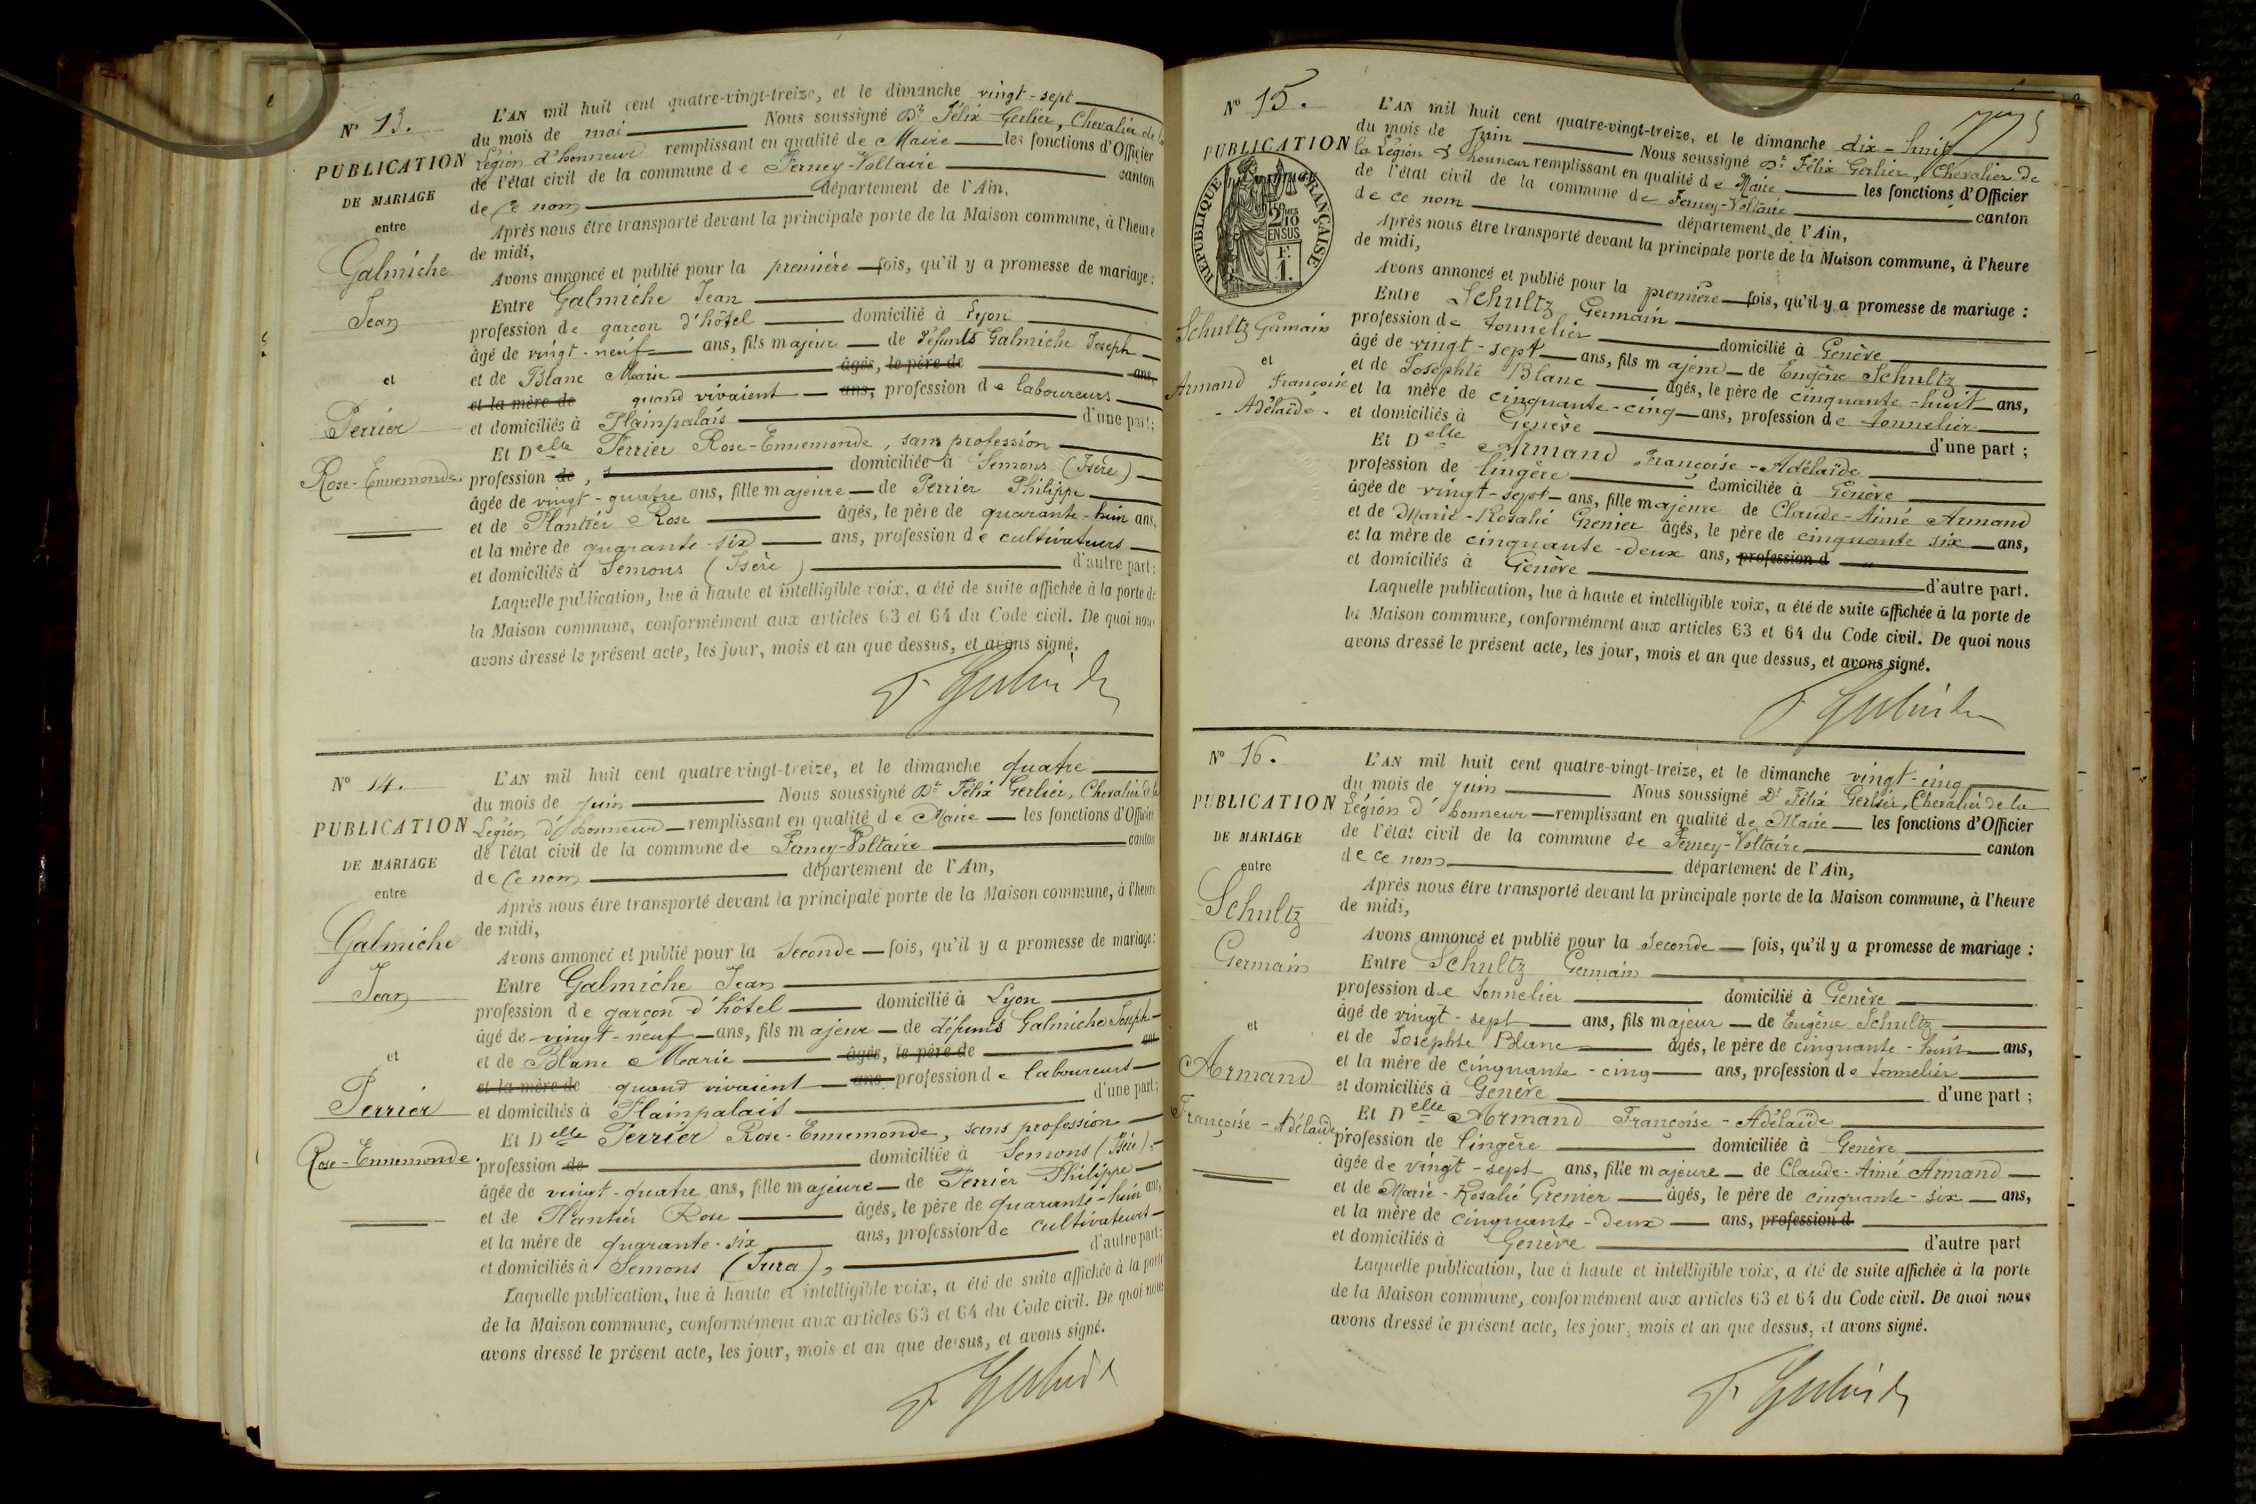 N° 13.
PUBLICATION
DE MARIAGE
entre
Galmiche
Jean
et
Perrier
Rose-Ennemonde.
L'AN mil huit cent quatre-vingt-treize, et le dimanche vingt-sept
du mois de mai Nous soussigné Dr Félix Gerlier, Chevalier de la
Légion d'honneur remplissant en qualité de Maire les fonctions d'Officier
de l'état civil de la commune de Ferney-Voltaire canton
de ce nom département de l'Ain,
Après nous être transporté devant la principale porte de la Maison commune, à l'heure
de midi,
Avons annoncé et publié pour la première fois, qu'il y a promesse de mariage :
Entre Galmiche Jean
profession de garçon d'hôtel domicilié à Lyon
âgé de vingt-neuf ans, fils majeur de défunts Galmiche Joseph
et de Blanc Marie âgés, le père de ans,
et la mère de quand vivaient ans, profession de laboureurs
et domiciliés à Plainpalais d'une part;
Et Delle Perrier Rose-Ennemonde, sans profession
profession de , domiciliée à Semons (Isère)
âgée de vingt-quatre ans, fille majeure de Perrier Philippe
et de Plantier Rose âgés, le père de quarante-huit ans,
et la mère de quarante-six ans, profession de cultivateurs
et domiciliés à Semons (Isère) d'autre part;
Laquelle publication, lue à haute et intelligible voix, a été de suite affichée à la porte de
la Maison commune, conformément aux articles 63 et 64 du Code civil. De quoi nous
avons dressé le présent acte, les jour, mois et an que dessus, et avons signé.
F. Gerlier Dr
N° 14.
PUBLICATION
DE MARIAGE
entre
Galmiche
Jean
et
Perrier
Rose-Ennemonde.
L'AN mil huit cent quatre-vingt-treize, et le dimanche quatre
du mois de juin Nous soussigné Dr Félix Gerlier, Chevalier de la
Légion d'honneur remplissant en qualité de Maire les fonctions d'Officier
de l'état civil de la commune de Ferney-Voltaire canton
de ce nom département de l'Ain,
Après nous être transporté devant la principale porte de la Maison commune, à l'heure
de midi,
Avons annoncé et publié pour la seconde fois, qu'il y a promesse de mariage :
Entre Galmiche Jean
profession de garçon d'hôtel domicilié à Lyon
âgé de vingt-neuf ans, fils majeur de défunts Galmiche Joseph
et de Blanc Marie âgés, le père de ans
et la mère de quand vivaient ans profession de laboureurs
et domiciliés à Plainpalais d'une part;
Et Delle Perrier Rose-Ennemonde, sans profession
profession de domiciliée à Semons (Isère),
âgée de vingt-quatre ans, fille majeure de Perrier Philippe
et de Plantier Rose âgés, le père de quarante-huit ans,
et la mère de quarante-six ans, profession de cultivateurs
et domiciliés à Semons (Jura), d'autre part;
Laquelle publication, lue à haute et intelligible voix, a été de suite affichée à la porte
de la Maison commune, conformément aux articles 63 et 64 du Code civil. De quoi nous
avons dressé le présent acte, les jour, mois et an que dessus, et avons signé.
F. Gerlier Dr
N° 15.
PUBLICATION
RÉPUBLIQUE FRANÇAISE
2/10
EN SUS
F.
1.
Schultz Germain
et
Armand Françoise
- Adélaïde.
L'AN mil huit cent quatre-vingt-treize, et le dimanche dix-huit
du mois de Juin Nous soussigné Dr Félix Gerlier, Chevalier de
la Légion d'honneur remplissant en qualité de Maire les fonctions d'Officier
de l'état civil de la commune de Ferney-Voltaire canton
de ce nom département de l'Ain,
Après nous être transporté devant la principale porte de la Maison commune, à l'heure
de midi,
Avons annoncé et publié pour la première fois, qu'il y a promesse de mariage :
Entre Schultz Germain
profession de tonnelier domicilié à Genève
âgé de vingt-sept ans, fils majeur de Eugène Schultz
et de Josephte Blanc âgés, le père de cinquante-huit ans,
et la mère de cinquante-cinq ans, profession de tonnelier
et domiciliés à Genève d'une part ;
Et Delle Armand Françoise-Adélaïde
profession de lingère domiciliée à Genève
âgée de vingt-sept ans, fille majeure de Claude-Aimé Armand
et de Marie-Rosalie Grenier âgés, le père de cinquante six ans,
et la mère de cinquante-deux ans, profession d "
et domiciliés à Genève d'autre part.
Laquelle publication, lue à haute et intelligible voix, a été de suite affichée à la porte de
la Maison commune, conformément aux articles 63 et 64 du Code civil. De quoi nous
avons dressé le présent acte, les jour, mois et an que dessus, et avons signé.
F. Gerlier Dr
N° 16.
PUBLICATION
DE MARIAGE
entre
Schultz
Germain
et
Armand
Françoise-Adélaïde.
L'AN mil huit cent quatre-vingt-treize, et le dimanche vingt-cinq
du mois de juin Nous soussigné Dr Félix Gerlier, Chevalier de la
Légion d'honneur remplissant en qualité de Maire les fonctions d'Officier
de l'état civil de la commune de Ferney-Voltaire canton
de ce nom département de l'Ain,
Après nous être transporté devant la principale porte de la Maison commune, à l'heure
de midi,
Avons annoncé et publié pour la seconde fois, qu'il y a promesse de mariage :
Entre Schultz Germain
profession de tonnelier domicilié à Genève
âgé de vingt-sept ans, fils majeur de Eugène Schultz
et de Josephte Blanc âgés, le père de cinquante-huit ans,
et la mère de cinquante-cinq ans, profession de tonnelier
et domiciliés à Genève d'une part ;
Et Delle Armand Françoise-Adélaïde
profession de lingère domiciliée à Genève
âgée de vingt-sept ans, fille majeure de Claude-Aimé Armand
et de Marie-Rosalie Grenier âgés, le père de cinquante-six ans,
et la mère de cinquante-deux ans, profession d
et domiciliés à Genève d'autre part
Laquelle publication, lue à haute et intelligible voix, a été de suite affichée à la porte
de la Maison commune, conformément aux articles 63 et 64 du Code civil. De quoi nous
avons dressé le présent acte, les jour, mois et an que dessus, et avons signé.
F. Gerlier Dr